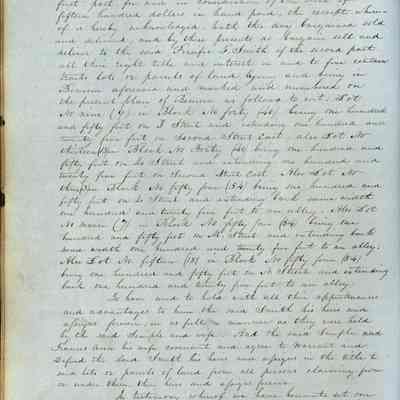 first part for and in consideration of the sum of
fifteen hundred dollars in hand paid, the receipt where
of is hereby acknowledged hath this day bargained sold
and delivered and by these presents do bargain sell and
deliver to the said Smith of the second part
all their right title and interest in and to five certain
tracts lots or parcels of land lying and being in
Benicia aforesaid and marked and numbered on
the present plan of Benicia as follows to wit. Lot
No nine (9) in Block No forty (40) being one hundred
and fifty feet on I Street and extending one hundred and
twenty five feet on Second Street East also Lot No
Block No forty (40) being one hundred and
fifty feet on Street and extending one hundred and
twenty five feet on Second Street East. Also Lot No
Block No fifty four (54) being one hundred
fifty feet on Street and extending back same width
one hundred and twenty five feet to an alley. Also Lot
No seven (7) in Block No fifty four (54) being one
hundred and fifty feet on Street and extending back
same width one hundred and twenty five feet to an alley.
Also Lot No fifteen (15) in Block No fifty four (54)
being one hundred and fifty feet on Street and extending
back one hundred and twenty five feet to an alley.
To have and to hold with all their appurtenances
and advantages to him the said Smith his heirs and
assigns forever in as full a manner as they are held
by the said Semple and wife. And the said Semple and
Frances Ann his wife covenant and agree to warrant and
defend the said Smith his heirs and assigns in the title to
said lots or parcels of land from all persons claiming from
or under them their heirs and assigns forever.
In testimony whereof we have hereunto set our